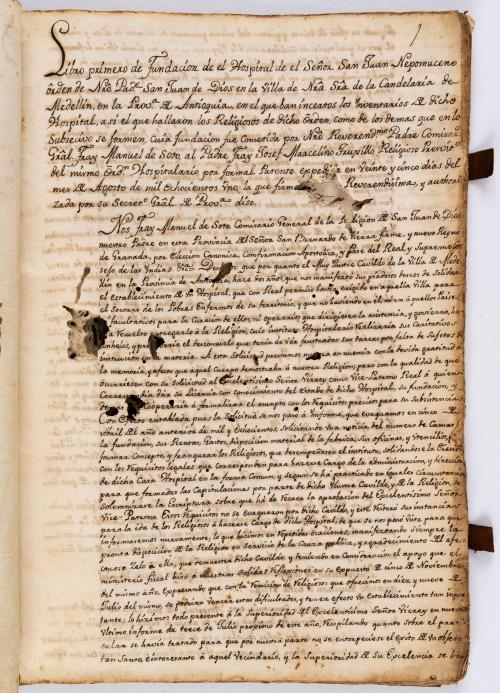 1
Libro primero de Fundacion de el Hospital de el Señor San Juan Nepomuceno
orden de Nrō. Padē. San Juan de Dios en la Villa de Nrā. Srā de la Candelaria de
Medellin, en la Provª. de Antioquia, en el que van incearos los Inventarios de dicho
Hospital, asi el que hallaron los Religiosos de dicho Orden, como de los demas que en lo
Subsecivo se formen, cuia fundacion fue cometida por Nrō Reverendmo. Padre Comisarº.
Grāl. Fray Manuel de Soto, al Padre Fray Josef Marcelino Truxillo Religioso Presvitº.
del mismo Ordn. Hospitalario por formal Patente expedida en Veinte y cinco dias del
mes de Agosto de mil Ochocientos Uno, la que firmó Reverendisima, y authori-
zada por su Secretº. Grāl. de Provª. dise.
Nos Fray Manuel de Soto, Comisario General de la Religion de San Juan de Dios
nuestro Padre en esta Provincia del Señor San Bernardo de tierra firme, y nuevo Reyno
de Granada, por Eleccion Canonica, Confirmacion Apostolica, y Pase del Real, y Supremo Con-
sejo de las Indias, que por quanto el Muy Ilustre Cavildo de la Villa de Mede-
llin en la Provincia de Antioquia, hace dos años, que nos manifestó sus piadosos deceos de Solidar
el establecimiento de Un Hospital, que con Real permiso havia exigido en aquella Villa para
el Socorro de los Pobres Enfermos de su territorio, y que no haviendo en él, ni en
facultativos para la Curacion de ellos, ni operarios que dirigiesen la asistencia, y govierno, ha-
via entregarlo á la Religion, cuio instituto Hospitalario realizaria sus Caritativos
anhelos, y el desconsuelo que tenia de ver frustradas sus tareas por falta de Sujetos de
instruccion en la materia. A esta Solicitud pusimos en memoria con la devida gratitud á
la memoria, y afecto que aquel Cuerpo demostraba á nuestra Religion; pero con la qualidad de que
ocurriesen con su Solicitud al Excelentisimo Señor Virrey como Vice-Patrono Real á quien
dar la licencia con conocimiento del Estado de dicho Hospital, su fundacion, y
Cooperaria á formalisar el asumpto con los Requicitos precisos para su Subsistencia.
Con Oficio entablada pues la Solicitud se nos pasó á Informe, que evaquamos en cinco de
Abril del año anterior de mil y Ochocientos, Solicitando Una noticia del numero de Camas
la fundacion, sus Rentas, Gastos, dispocicion material de la fabrica, sus oficinas, y Utencilios
formar Concepto, y franquear los Religiosos, que desempeñasen el instituto, solidandose la Ereccion
con los Requicitos legales que corresponden para hacerse Cargo de la administracion, y direccion
de dicha Casa Hospital en la forma Comun y segun se há practicado en iguales circunstancias
para que formadas las Capitulaciones por parte de dicho Ilustre Cavildo, y de la Religion, se
Solemnizare la Escriptura sobre que há de recaer la aprobacion del Excelentisimo Señor
Vice-Patrono. Estos Requicitos no se evaquaron por dicho Cavildo, y este reiteró sus instancias
para la ida de los Religiosos á hacerse Cargo de dicho Hospital, de que se nos pasó Vista para que
informaremos nuevamente, lo que hicimos en repetidas ocaciones, manifestando Siempre la
pronta dispocicion de la Religion en Servicio de la Causa publica, y agradecimiento del afec-
tuoso Zelo á ella, que demuestra dicho Cavildo, y teniendo en Consideracion el apoyo que el
ministerio fiscal hiso á nuestras solidas Reflecciones en su Expuesto de cinco de Noviembre
del mismo año, Esperando que con la remicion de Religiosos que ofrecimos en diez y nueve de
Julio del mismo, se podrian vencer estas dificultades, y tener efecto Un establecimiento tan impor-
tante; lo hicimos todo precente á la Superioridad del Excelentisimo Señor Virrey en nuestro
Ultimo informe de trece de Julio proximo de este año, recopilando quanto sobre el parti-
cular se havia tratado para que por nuestra parte no se entorpeciese el exito de Un objeto
tan Santo, é interezante á aquel Vecindario, y la Superioridad de su Excelencia se